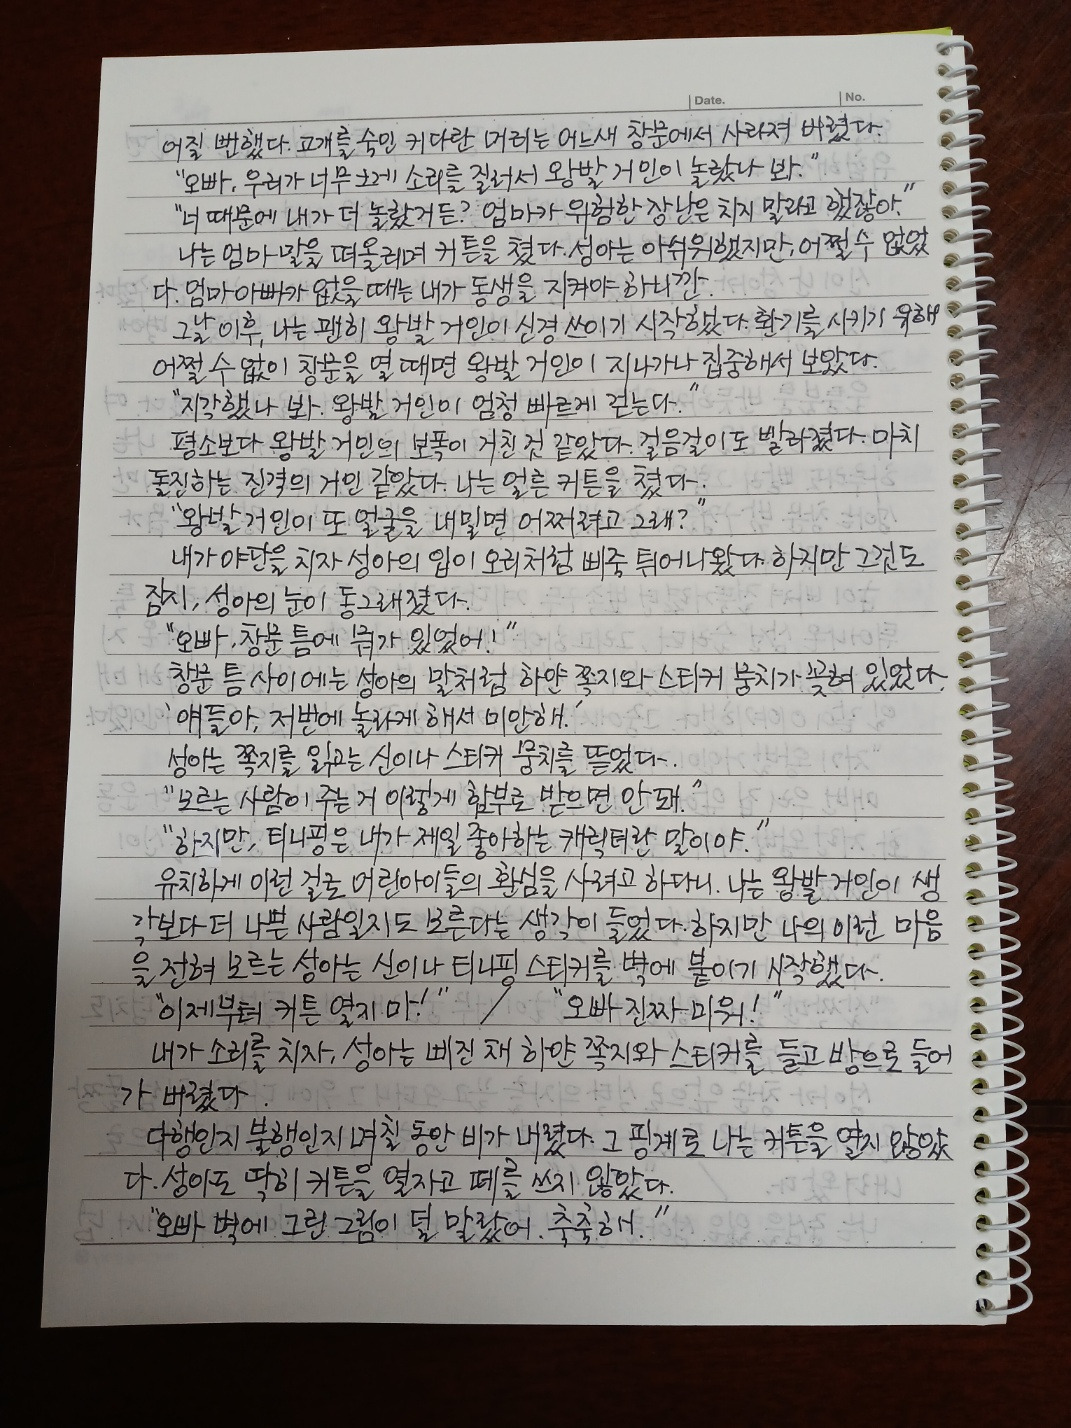 Date.
No.
어질 뻔했다. 고개를 숙인 커다란 머리는 어느새 창문에서 사라져 버렸다.
"오빠, 우리가 너무 크게 소리를 질러서 왕발 거인이 놀랐나 봐."
"너 때문에 내가 더 놀랐거든? 엄마가 위험한 장난은 치지 말라고 했잖아."
나는 엄마 말을 떠올리며 커튼을 쳤다. 성아는 아쉬워했지만, 어쩔 수 없었
다. 엄마 아빠가 없을 때는 내가 동생을 지켜야 하니깐.
그날 이후, 나는 괜히 왕발 거인이 신경 쓰이기 시작했다. 환기를 시키기 위해
어쩔 수 없이 창문을 열 때면 왕발 거인이 지나가나 집중해서 보았다.
"지각했나 봐. 왕발 거인이 엄청 빠르게 걷는다."
평소보다 왕발 거인의 보폭이 거친 것 같았다. 걸음걸이도 빨라졌다. 마치
돌진하는 진격의 거인 같았다. 나는 얼른 커튼을 쳤다.
"왕발 거인이 또 얼굴을 내밀면 어쩌려고 그래?"
내가 야단을 치자 성아의 입이 오리처럼 삐죽 튀어나왔다. 하지만 그것도
잠시, 성아의 눈이 동그래졌다.
"오빠, 창문 틈에 뭐가 있었어!"
창문 틈 사이에는 성아의 말처럼 하얀 쪽지와 스티커 뭉치가 꽂혀 있었다.
'얘들아, 저번에 놀라게 해서 미안해.'
성아는 쪽지를 읽고는 신이나 스티커 뭉치를 뜯었다.
"모르는 사람이 주는 거 이렇게 함부로 받으면 안 돼."
"하지만, 티니핑은 내가 제일 좋아하는 캐릭터란 말이야."
유치하게 이런 걸로 어린아이들의 환심을 사려고 하다니. 나는 왕발 거인이 생
각보다 더 나쁜 사람일지도 모른다는 생각이 들었다. 하지만 나의 이런 마음
을 전혀 모르는 성아는 신이나 티니핑 스티커를 벽에 붙이기 시작했다.
"이제부터 커튼 열지 마!" / "오빠 진짜 미워!"
내가 소리를 치자, 성아는 삐진 채 하얀 쪽지와 스티커를 들고 방으로 들어
가 버렸다.
다행인지 불행인지 며칠 동안 비가 내렸다. 그 핑계로 나는 커튼을 열지 않았
다. 성아도 딱히 커튼을 열자고 떼를 쓰지 않았다.
"오빠 벽에 그린 그림이 덜 말랐어. 축축해."